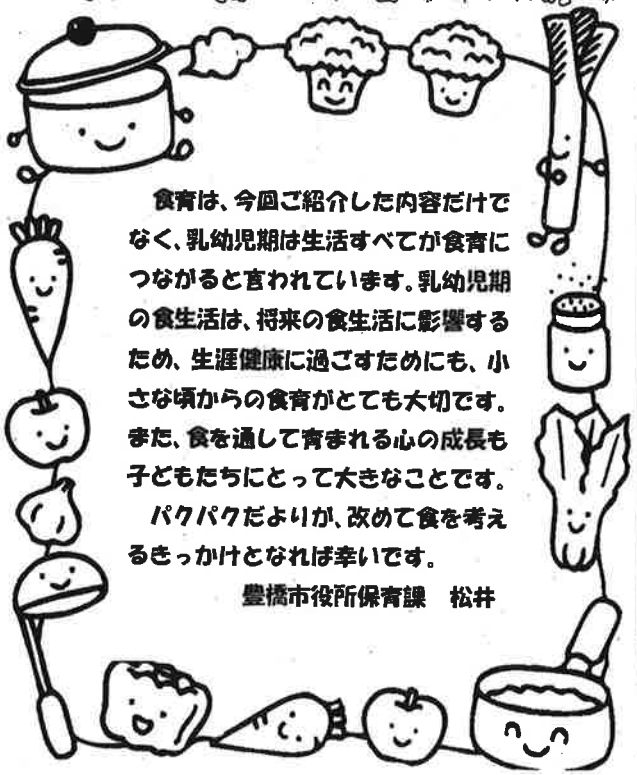 食育は、今回ご紹介した内容だけで
なく、乳幼児期は生活すべてが食育に
つながると言われています。乳幼児期
の食生活は、将来の食生活に影響する
ため、生涯健康に過ごすためにも、小
さな頃からの食育がとても大切です。
また、食を通して育まれる心の成長も
子どもたちにとって大きなことです。
パクパクだよりが、改めて食を考え
るきっかけとなれば幸いです。
豊橋市役所保育課 松井